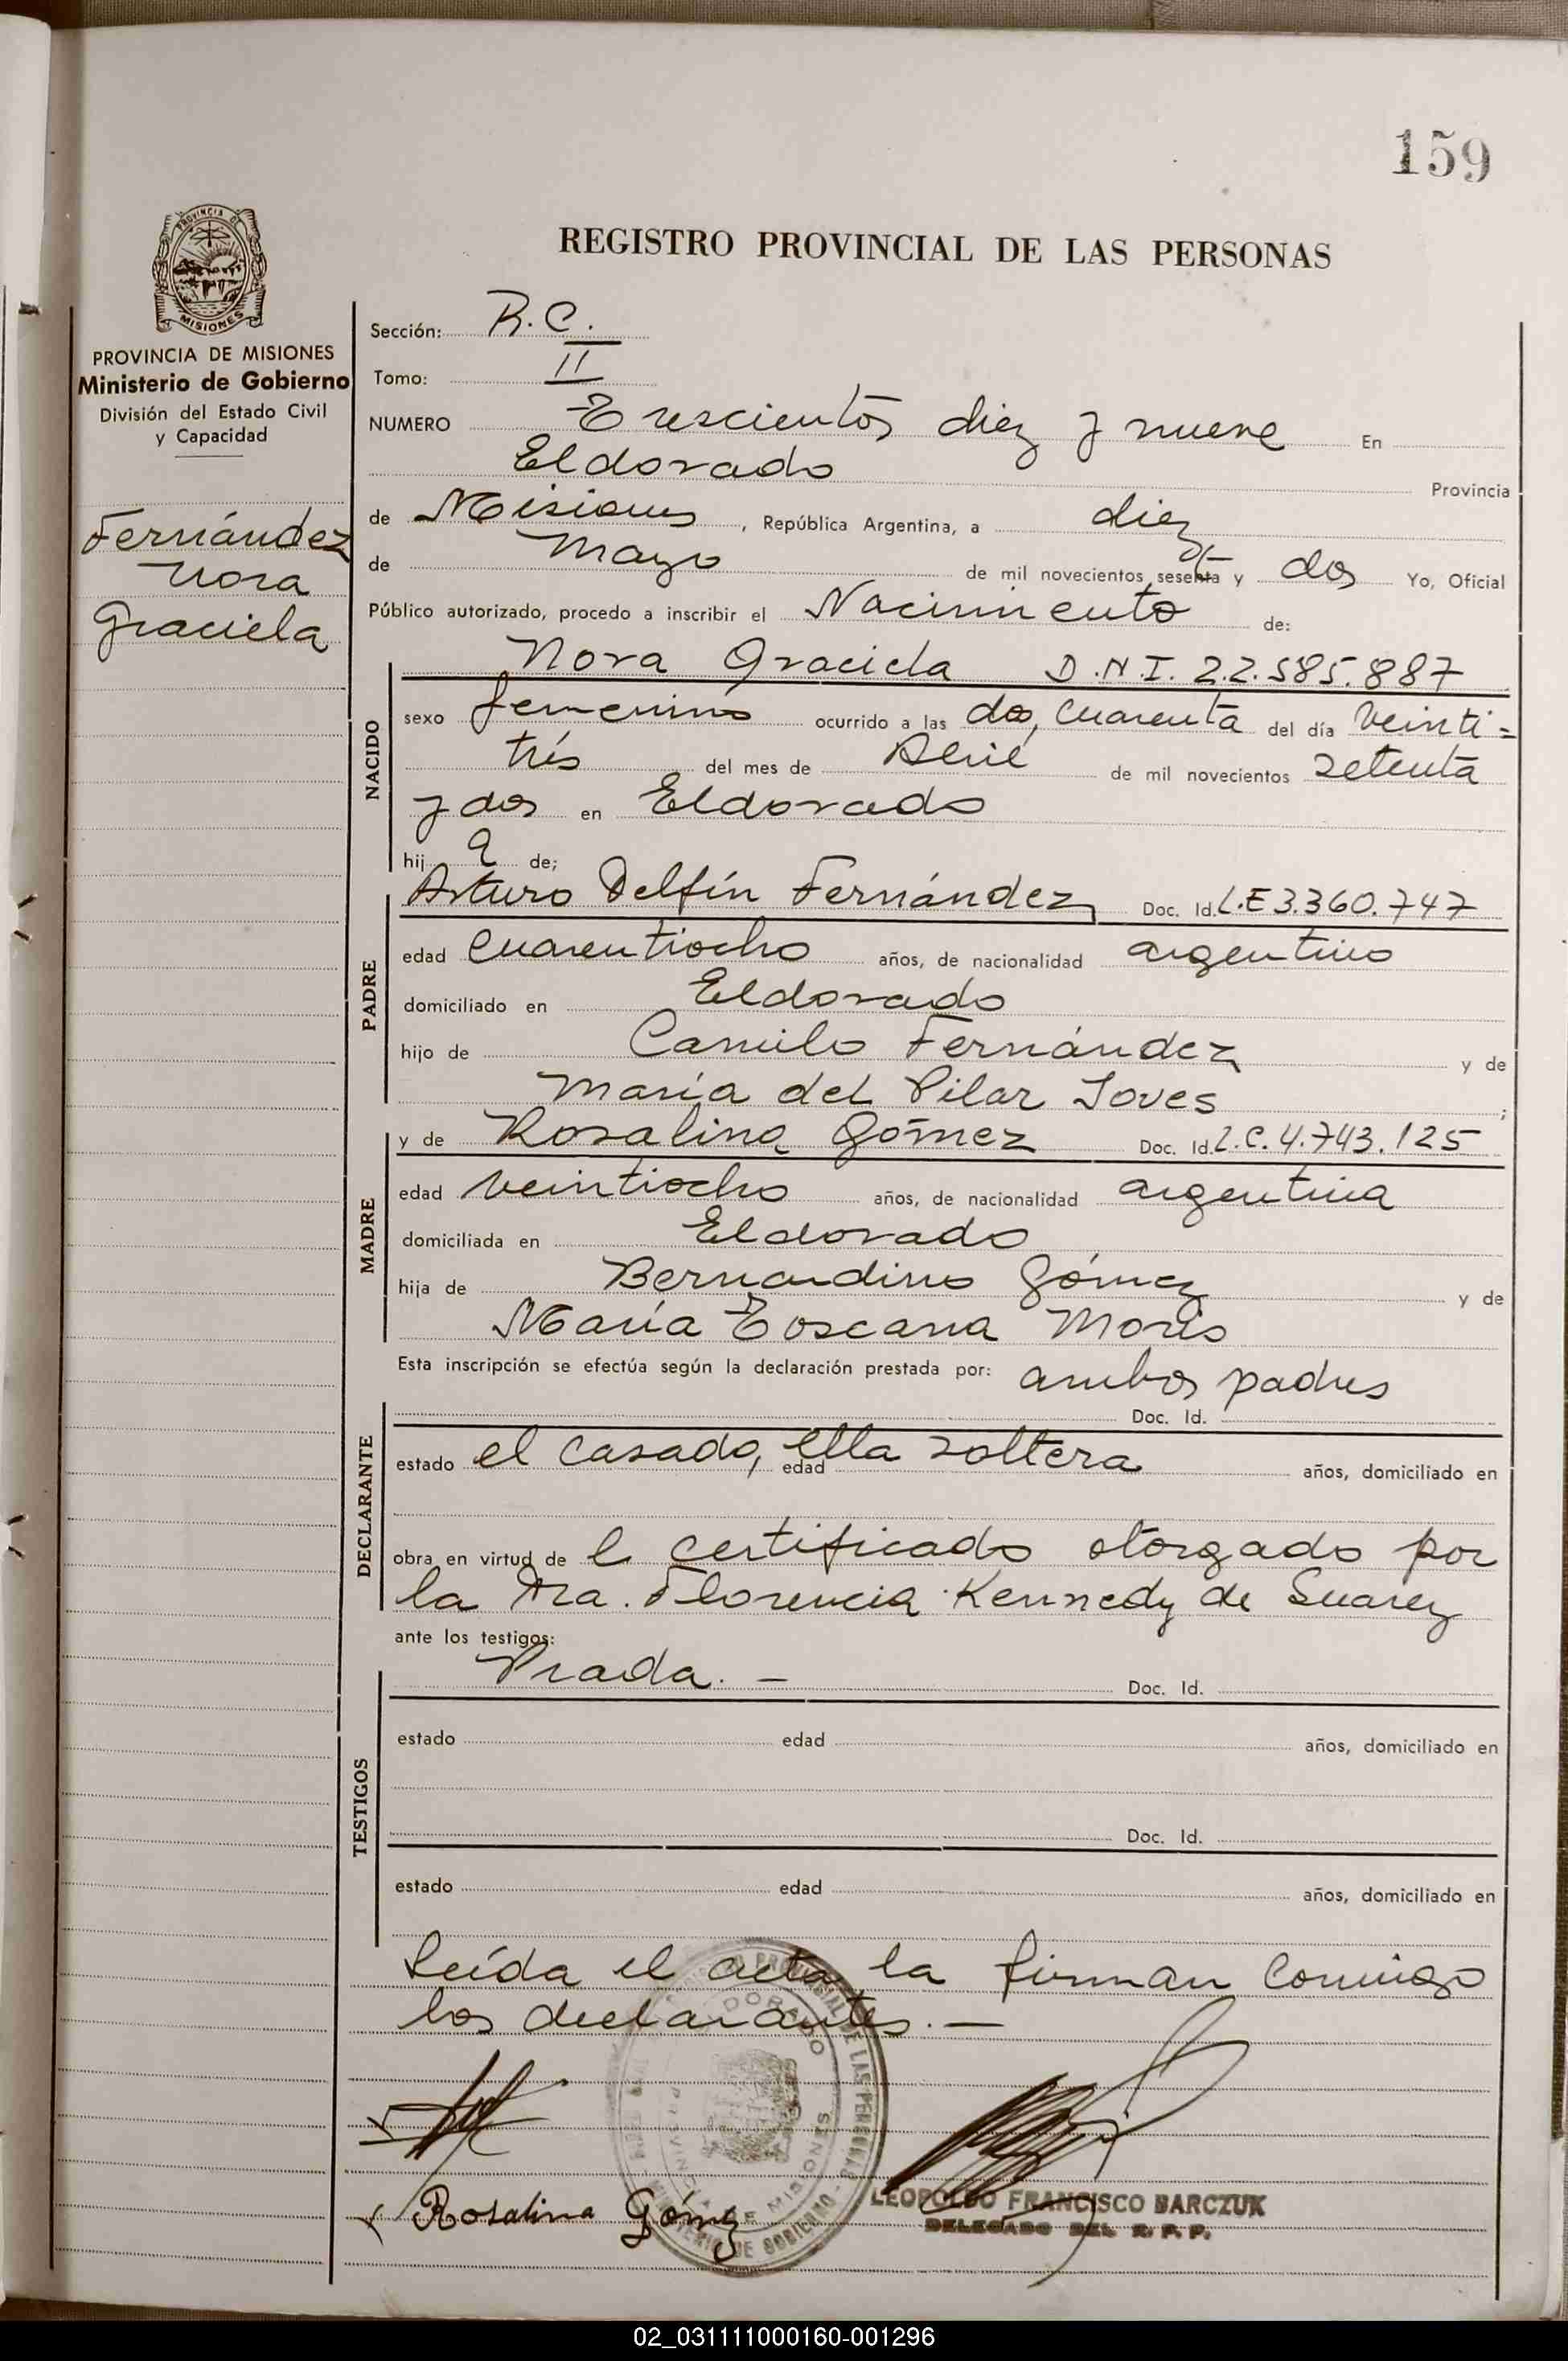 159
PROVINCIA DE
MISIONES
PROVINCIA DE MISIONES
Ministerio de Gobierno
División del Estado Civil
y Capacidad
Fernández
Nora
Graciela
REGISTRO PROVINCIAL DE LAS PERSONAS
Sección: R.C.
Tomo: II
NUMERO Trescientos diez y nueve En
Eldorado Provincia
de Misiones, República Argentina, a diez
de Mayo de mil novecientos sesenta y dos Yo, Oficial
Público autorizado, procedo a inscribir el Nacimiento de:
Nora Graciela D.N.I. 22.585.887
NACIDO
sexo femenino ocurrido a las dos, cuarenta del día veinti=
trés del mes de Abril de mil novecientos setenta
y dos en Eldorado
hij a de;
PADRE
Arturo Delfín Fernández Doc. Id. L.E 3.360.747
edad cuarentiocho años, de nacionalidad argentino
domiciliado en Eldorado
hijo de Camilo Fernández y de
María del Pilar Joves ;
MADRE
y de Rosalina Gómez Doc. Id. L.C. 4.743.125
edad veintiocho años, de nacionalidad argentina
domiciliada en Eldorado
hija de Bernardino Gómez y de
María Toscana Moris
Esta inscripción se efectúa según la declaración prestada por: ambos padres
Doc. Id.
DECLARANTE
estado el casado, ella soltera edad años, domiciliado en
obra en virtud de l certificado otorgado por
la Dra. Florencia Kennedy de Suarez
ante los testigos:
Prada. - Doc. Id.
TESTIGOS
estado edad años, domiciliado en
Doc. Id.
estado edad años, domiciliado en
Leída el acta la firman conmigo
los declarantes. —
ELDORADO
PROVINCIA DE MISIONES
Rosalina Gómez
LEOPOLDO FRANCISCO BARCZUK
DELEGADO DEL R. P. P.
02_031111000160-001296